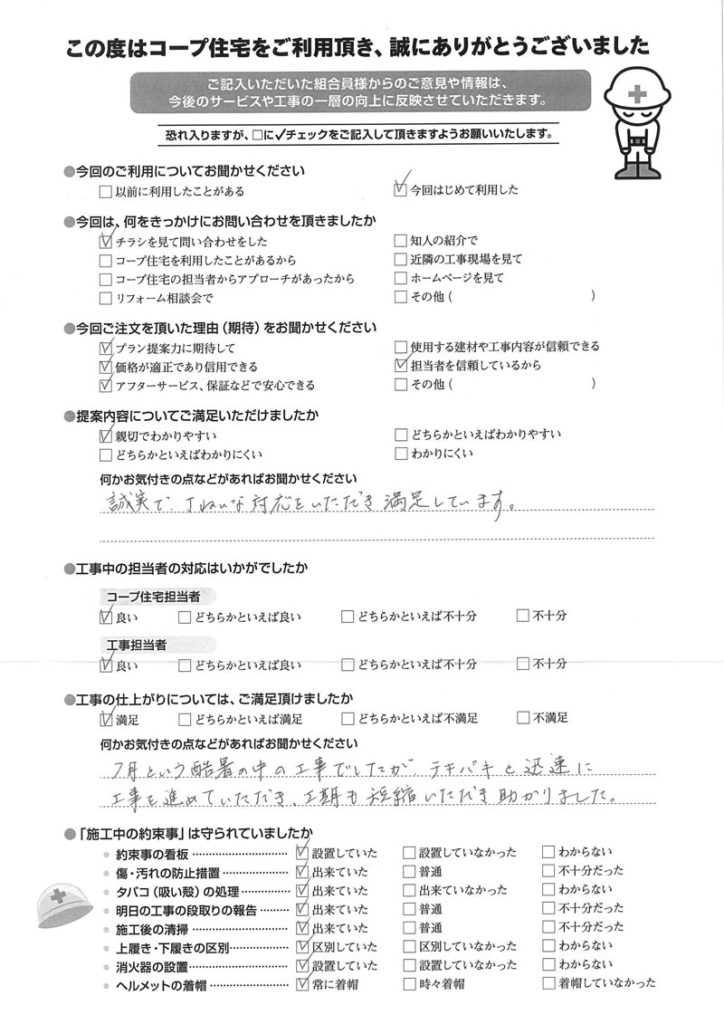 この度はコープ住宅をご利用頂き、誠にありがとうございました
ご記入いただいた組合員様からのご意見や情報は、
今後のサービスや工事の一層の向上に反映させていただきます。
恐れ入りますが、□に✓チェックをご記入して頂きますようお願いいたします。
●今回のご利用についてお聞かせください
□以前に利用したことがある ☑今回はじめて利用した
●今回は、何をきっかけにお問い合わせを頂きましたか
☑チラシを見て問い合わせをした □知人の紹介で
□コープ住宅を利用したことがあるから □近隣の工事現場を見て
□コープ住宅の担当者からアプローチがあったから □ホームページを見て
□リフォーム相談会で □その他( )
●今回ご注文を頂いた理由(期待)をお聞かせください
☑プラン提案力に期待して □使用する建材や工事内容が信頼できる
☑価格が適正であり信用できる ☑担当者を信頼しているから
☑アフターサービス、保証などで安心できる □その他( )
●提案内容についてご満足いただけましたか
☑親切でわかりやすい □どちらかといえばわかりやすい
□どちらかといえばわかりにくい □わかりにくい
何かお気付きの点などがあればお聞かせください
誠実で、丁ねいな対応をいただき満足しています。
●工事中の担当者の対応はいかがでしたか
コープ住宅担当者
☑良い □どちらかといえば良い □どちらかといえば不十分 □不十分
工事担当者
☑良い □どちらかといえば良い □どちらかといえば不十分 □不十分
●工事の仕上がりについては、ご満足頂けましたか
☑満足 □どちらかといえば満足 □どちらかといえば不満足 □不満足
何かお気付きの点などがあればお聞かせください
7月という酷暑の中の工事でしたが、テキパキと迅速に
工事を進めていただき、工期も短縮いただき助かりました。
●「施工中の約束事」は守られていましたか
●約束事の看板 ☑設置していた □設置していなかった □わからない
●傷・汚れの防止措置 ☑出来ていた □普通 □不十分だった
●タバコ(吸い殻)の処理 ☑出来ていた □出来ていなかった □わからない
●明日の工事の段取りの報告 ☑出来ていた □普通 □不十分だった
●施工後の清掃 ☑出来ていた □普通 □不十分だった
●上履き・下履きの区別 ☑区別していた □区別していなかった □わからない
●消火器の設置 ☑設置していた □設置していなかった □わからない
●ヘルメットの着帽 ☑常に着帽 □時々着帽 □着帽していなかった